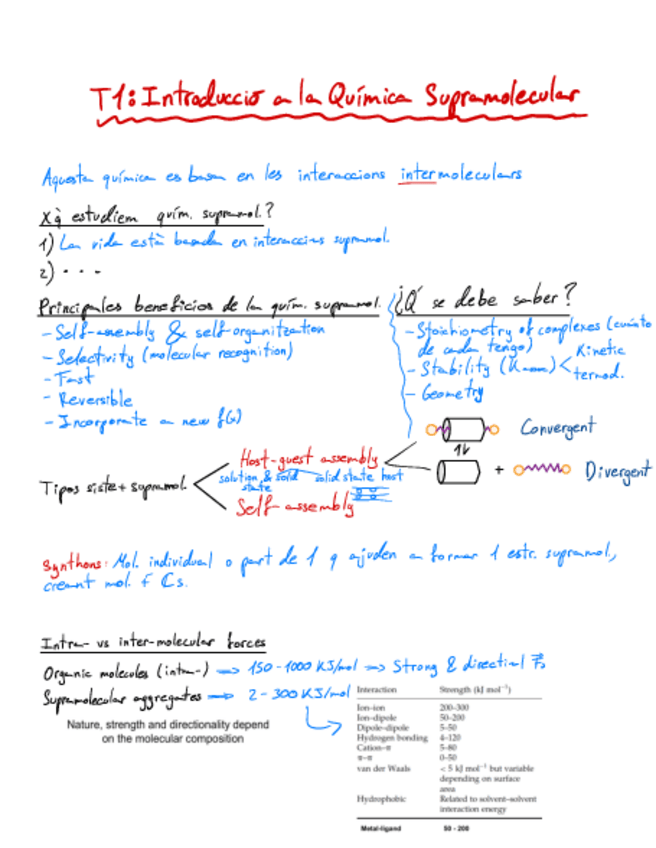 T1: Introducció a la Química Supramolecular
Aquesta química es basa en les interaccions intermoleculars
Xq̀ estudiem quím. supramol.?
1) La vida està basada en interaccions supramol.
2) ...
Principales beneficios de la quím. supramol.
- Self-assembly & self organitzation
- Selectivity (molecular recognition)
- Fast
- Reversible
- Incorporate a new f(x)
¿Q' se debe saber?
- Stoichiometry of complexes (cuánto
de cada tengo)
- Stability (Kassoc) < Kinetic
termod.
- Geometry
Convergent
+ Divergent
Tipos siste+ supramol.
Host-guest assembly
solution & solid state
solid state host
Self assembly
Synthons: Mol. individual o part de 1 q ajuden a formar 1 estr. supramol,
creant mol. f Cs.
Intra- vs inter-molecular forces
Organic molecules (intra-) => 150-1000 KJ/mol => Strong & directional F⃗s
Supramolecular aggregates => 2-300 KJ/mol
Nature, strength and directionality depend
on the molecular composition
Interaction Strength (kJ mol⁻¹)
Ion–ion 200–300
Ion–dipole 50–200
Dipole–dipole 5–50
Hydrogen bonding 4–120
Cation–π 5–80
π–π 0–50
van der Waals < 5 kJ mol⁻¹ but variable
depending on surface
area
Hydrophobic Related to solvent–solvent
interaction energy
Metal-ligand 50 - 200